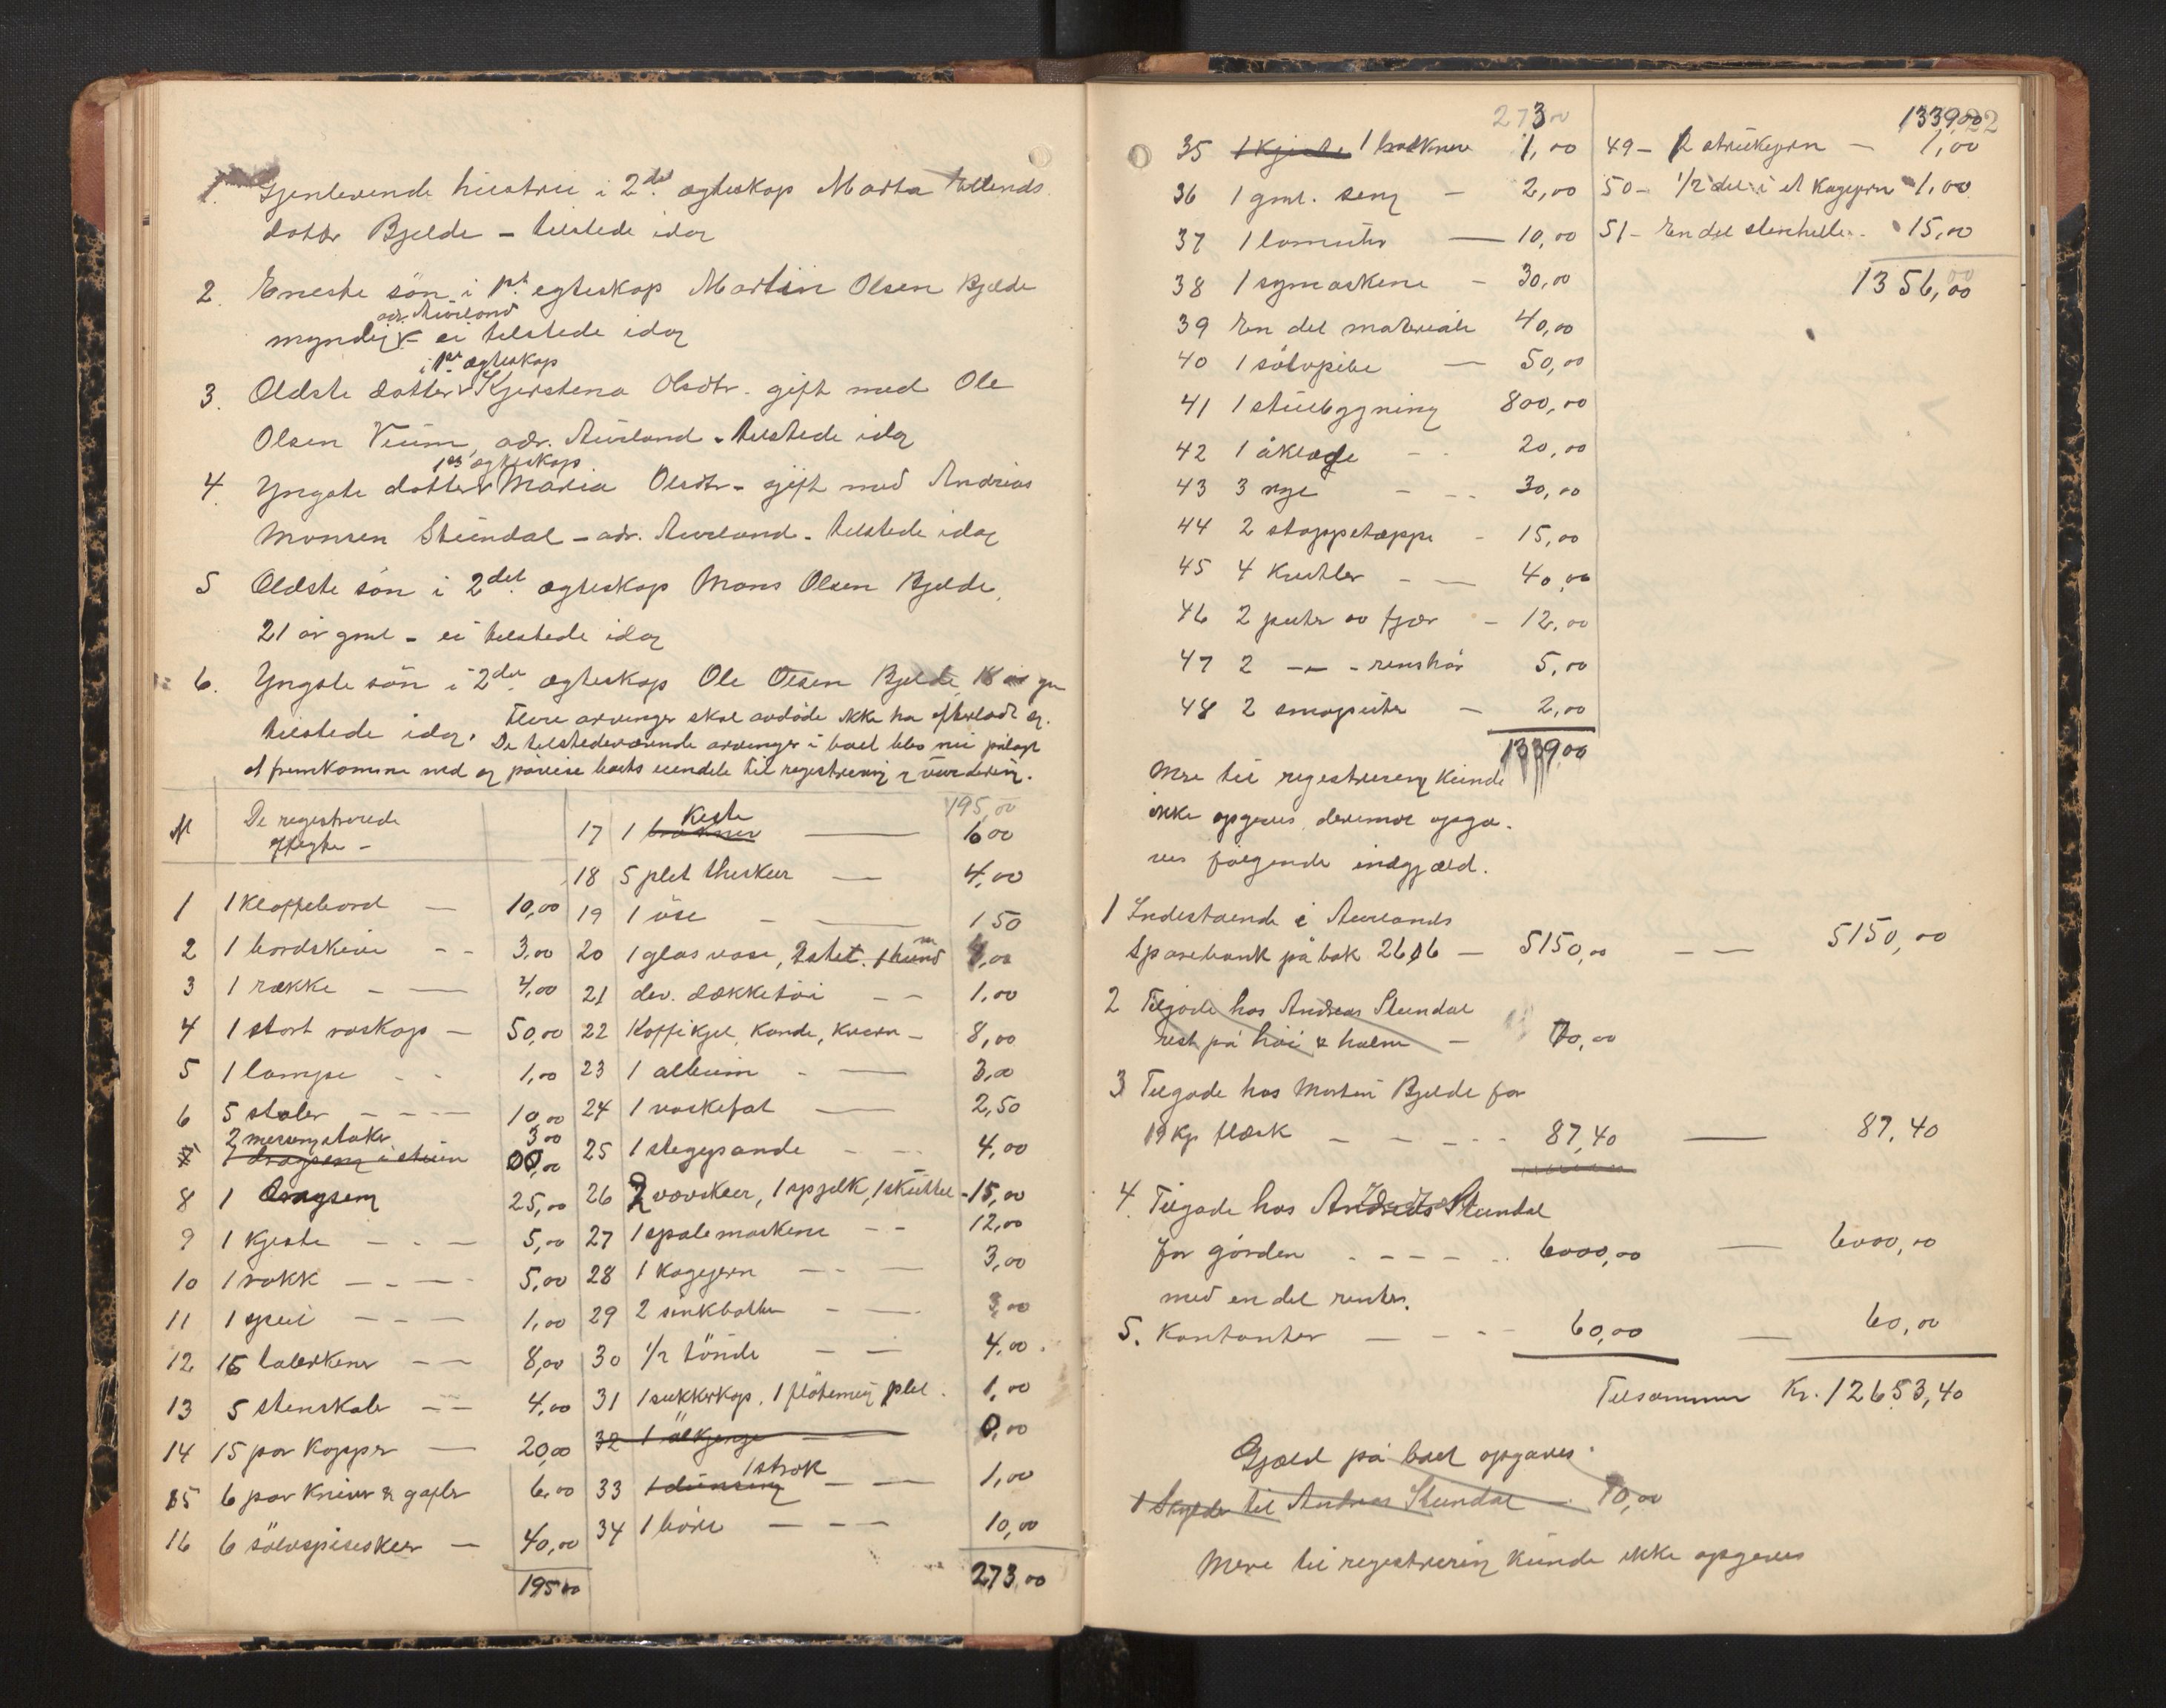 1. Gjenlevende hustru i 2det ægteskap Marta Ellends
datter Bjelde – tilstede idag
2. Eneste sön i 1st egteskap Martin Olsen Bjelde
adr. Aurland
myndig – ei tilstede idag
i 1st ægteskap
3. Ældste datter Kjerstena Olsdtr. gift med Ole
Olsen Veum, adr. Aurland – tilstede idag
1ste ægteskap
4 Yngste datter Maria Olsdtr – gift med Andreas
Monsen Steindal – adr. Aurland – tilstede idag
5 Ældste sön i 2det ægteskap Mons Olsen Bjelde,
21 år gml – ei tilstede idag
6. Yngste sön i 2det ægteskap Ole Olsen Bjelde 18 år gm
tilstede idag. Flere arvinger skal avdöde ikke ha efterladt sig.
De tilstedeværende arvinger i boet blev nu pålagt
at fremkomme med og påvise boets eiendele til registrering & vurdering.
N De registrerede
effegter –
1 1 Klaffebord — 10,00
2 1 bordskive – – 3,00
3 1 række – — 4,00
4 1 stort vaskap – 50,00
5 1 lampe – – 1,00
6 5 stoler – – – 10,00
2 messingstaker 3,00
7 1 dragseng i stuen 00,00
8 1 Dragseng 25,00
9 1 Kjeste – – — 5,00
10 1 rokk — – — 5,00
11 1 speil – – – 1,00
12 15 talerkener – – 8,00
13 5 stenskaler – – 4,00
14 15 par Kopper — 20,00
15 6 par Kniver & gafler 6,00
16 6 sölvspiseskeer — 40,00
195 00
195,00
Keste
17 1 — 6 00
18 5 plet theskeer — 4,00
19 1 öse – — 1 50
20 1 glas vase, 2 stet. 1 hund 4,00
21 div. dækketöi – – 1,00
22 Koffikjel, Kande, Kværn – 8,00
23 1 album – — 3,00
24 1 vaskefat — 2,50
25 1 stegepande – – 4,00
26 2 vævskeer, 1 spjelk, 1 skuttel – 15,00
27 1 spolemaskene – – 12,00
28 1 Kagejern – – — 3,00
29 2 sinkbatter – — 3,00
30 1/2 tönde — – 4,00
31 1 sukkerkop, 1 flötemug plet. 1,00
32 1 ölkjenge — 0,00
1 strok
33 1 — — 1,00
34 1 böre — – – 10,00
273,00
273 00
35 1 Kjeste 1 1,00
36 1 gml. seng – 2,00
37 1 komfur — 10,00
38 1 symaskene – 30,00
39 En del materiale 40,00
40 1 sölvpibe — 50,00
41 1 stuebygning 800,00
42 1 åklæde – – 20,00
43 3 rye – – – 30,00
44 2 stoppetæppe – 15,00
45 4 Kvitler – — 40,00
46 2 puter av fjær – 12,00
47 2 –„– – renshår 5,00
48 2 småputer – 2,00
1339,00
1339,00 22
49 – 2 strikejern — 1,00
50 – 1/2 del i et Kagejern 1,00
51 – En del stenheller – 15,00
1356,00
Mere til registrering Kunde
ikke opgives, derimot opga-
ves fölgende indgjæld.
1 Indestaende i Aurlands
Sparebank på bok 2616 — 5150,00 – — 5150,00
2 Tilgode hos Andreas Steindal
rest på höi & halm – 70,00
3 Tilgode hos Martin Bjelde for
19 Kg flæsk – – – – 87,40 — 87,40
4. Tilgode hos Andreas Steindal
for gården – – – – 6000,00 — 6000,00
med en del renter.
5. Kontanter — – – – 60,00 — 60,00
Tilsammen Kr. 12653,40
Gjæld på boet opgaves.
1 Skylder til Andreas Steindal – 70,00
Mere til registrering kunde ikke opgives